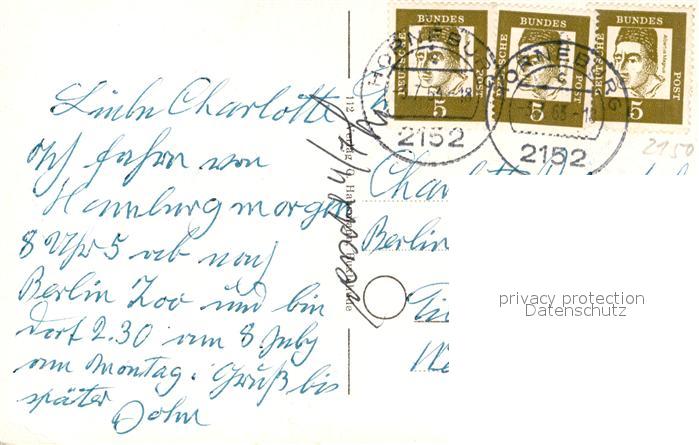 BUNDES BUNDES BUNDES
DEUTSCHE POST DEUTSCHE POST POST
Albertus Magnus
5 5 5
HORNEBURG HORNEBURG
63.-18
2152 2152
2150
Liebe Charlotte
Ich fahre von
Hamburg morgen
8 Uhr 5 ab nach
Berlin Zoo und bin
dort 2.30 am 8 July
am Montag. Gruß bis
später
112
Verlag
Berlin
privacy protection
Datenschutz